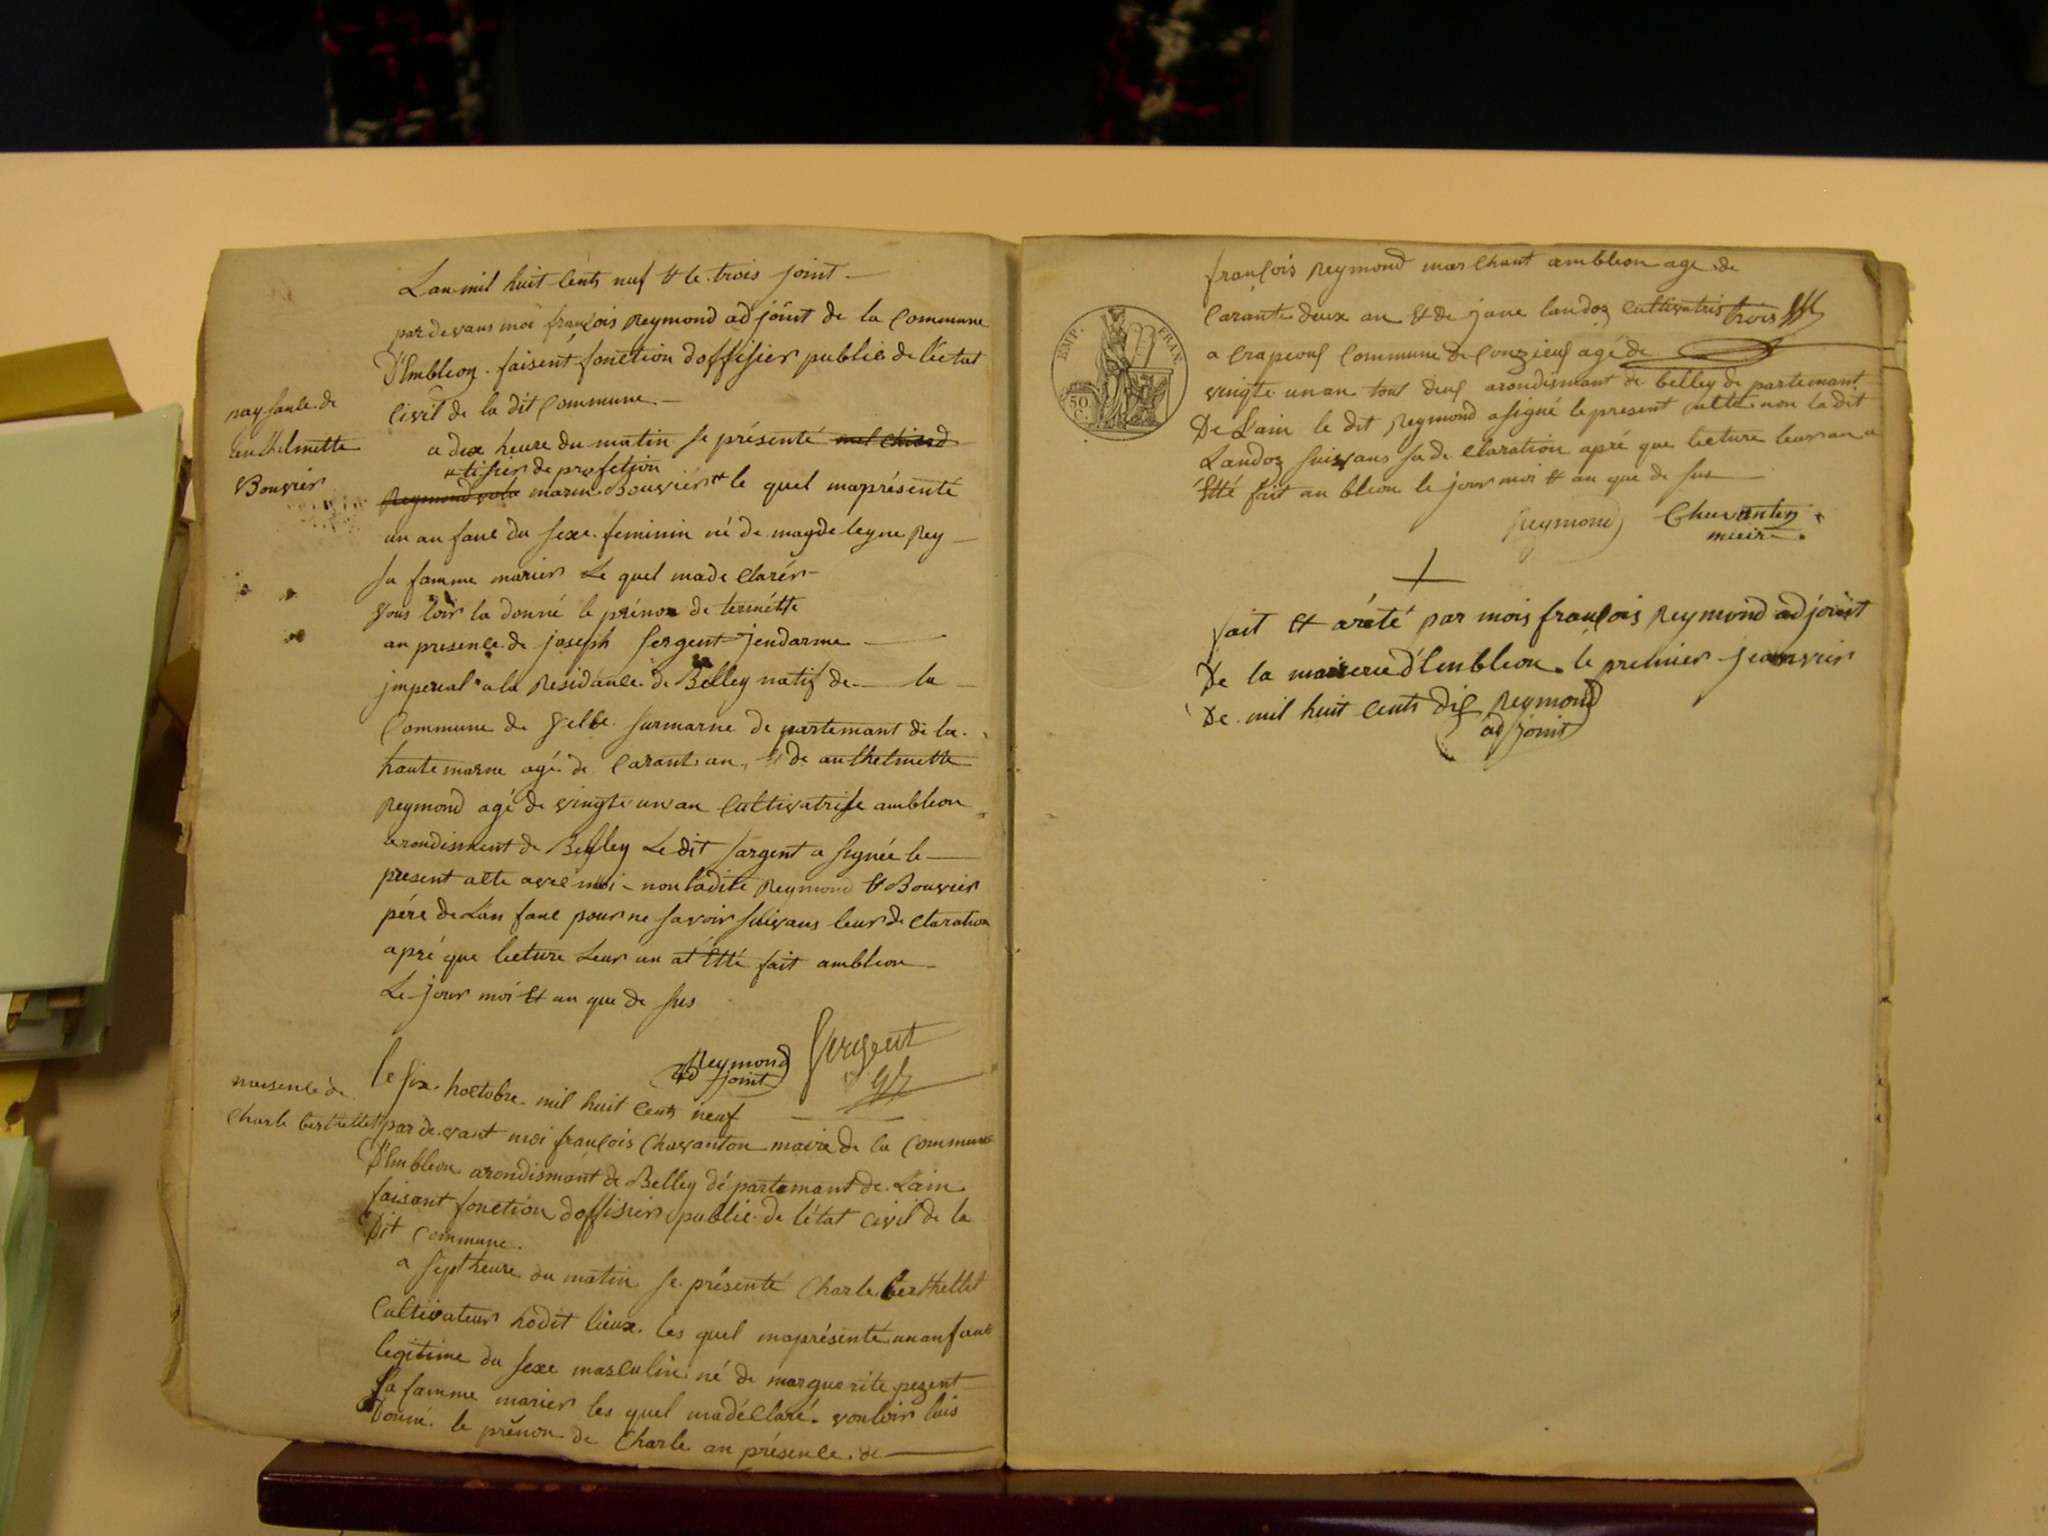 Lan mil huit Cents neuf & le trois joint
pardevans moi françois Reymond adjoint de la Commune
D'Embleon faisent fonction doffisier publie de l'état
Civil de la dit Commune
naysance de
Enthelmette
Bouvier
a dix heure du matin se présenté
tisier de profetion
marin Bouviér le quel maprésenté
un an fant du sexe feminin né de magdeleyne Rey
sa famme marier Le quel made Clarér
vous loir la donné le prénon de
an presence de joseph Sergent jendarme
jmperial a la Residance de Belley natif de la
Commune de surmarne de partemant de la
haute marne agé de Carant an, & de anthelmette
Reymond agé de vingte un an Cultivatrise ambleon
arondisment de Belley Le dit Sargent a signée le
present atte avec moi non ladite Reymond & Bouvier
pére de Lan fant pour ne savoir suivans leur de claration
apré que lecture Leur an at Etté fait ambleon
Le jour moi & an que de sus
Reymond
adjoint
Sergent
naisence de
Charle berthellet
le six hoctobre mil huit Cents neuf
par de vant moi françois Chavanton maire de la Commune
D'Embleon arondismant de Belley dé partemant de Lain
faisant fonction doffisier publie de l'état Civil de la
Dit Commune.
a sept heure du matin se présenté Charle berthellet
Cultivateur hodit lieux les quel maprésenté un anfant
legitime du sexe masculin né de marguerite pezent
sa famme marier les quel madéclaré vouloir luis
Donné le prénon de Charle an présence de
EMP. FRAN.
50
C.
françois Reymond marchant ambleon age de
Carante deux an & de jane landoz Cultivatris
a Crapeouf Commune de Conzieuf agé de
vingte un an tous deuf arondismant de belley de partemant
De Lain le dit Reymond a signé le present atte non la dit
Landoz suivans sa de Claration apré que lecture leur an a
Etté fait an bleon le jour moi & an que de sus
Reymond Chavanton
maire
fait & arété par mois françois Reymond adjoint
De la mairerie d'Embleon le premier jeanvier
De mil huit cents dix Reymond
adjoint